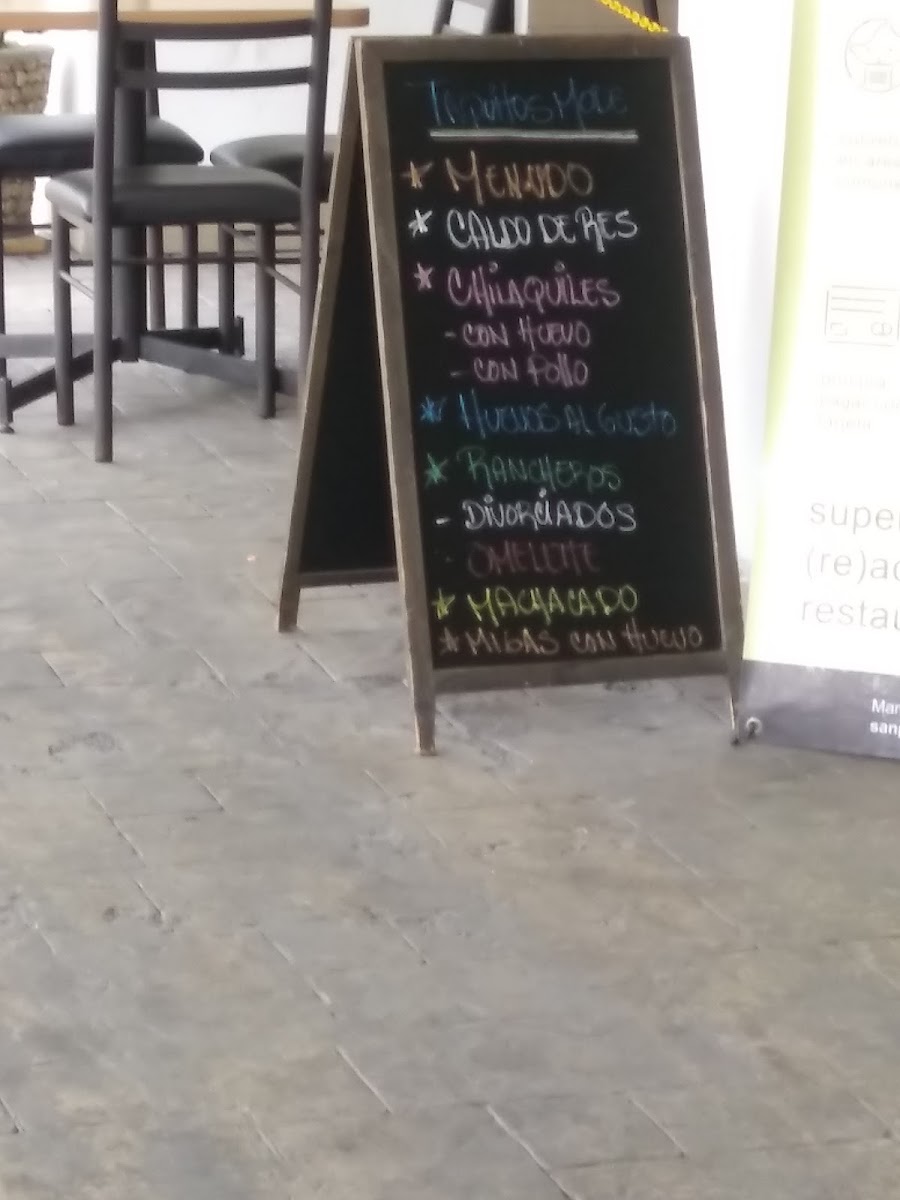 Taquitos Mole
* MENUDO
* CALDO DE RES
* CHILAQUILES
- CON HUEVO
- CON POLLO
* HUEVOS AL GUSTO
* RANCHEROS
- DIVORCIADOS
- OMELETTE
* MACHACADO
* MIGAS CON HUEVO
super
(re)ac
restau
Mar
sanp